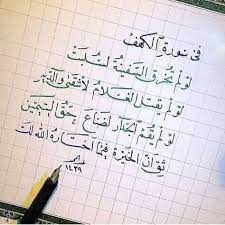 في سورة الكهف
لو لم تُخرق السفينة لسُلبت
لو لم يقتل الغلام لأشقى والديه
لو لم يقم الجدار لضاع حق اليتيمين
ثق أن الخيرة فيما اختاره الله لك
١٤٣٩